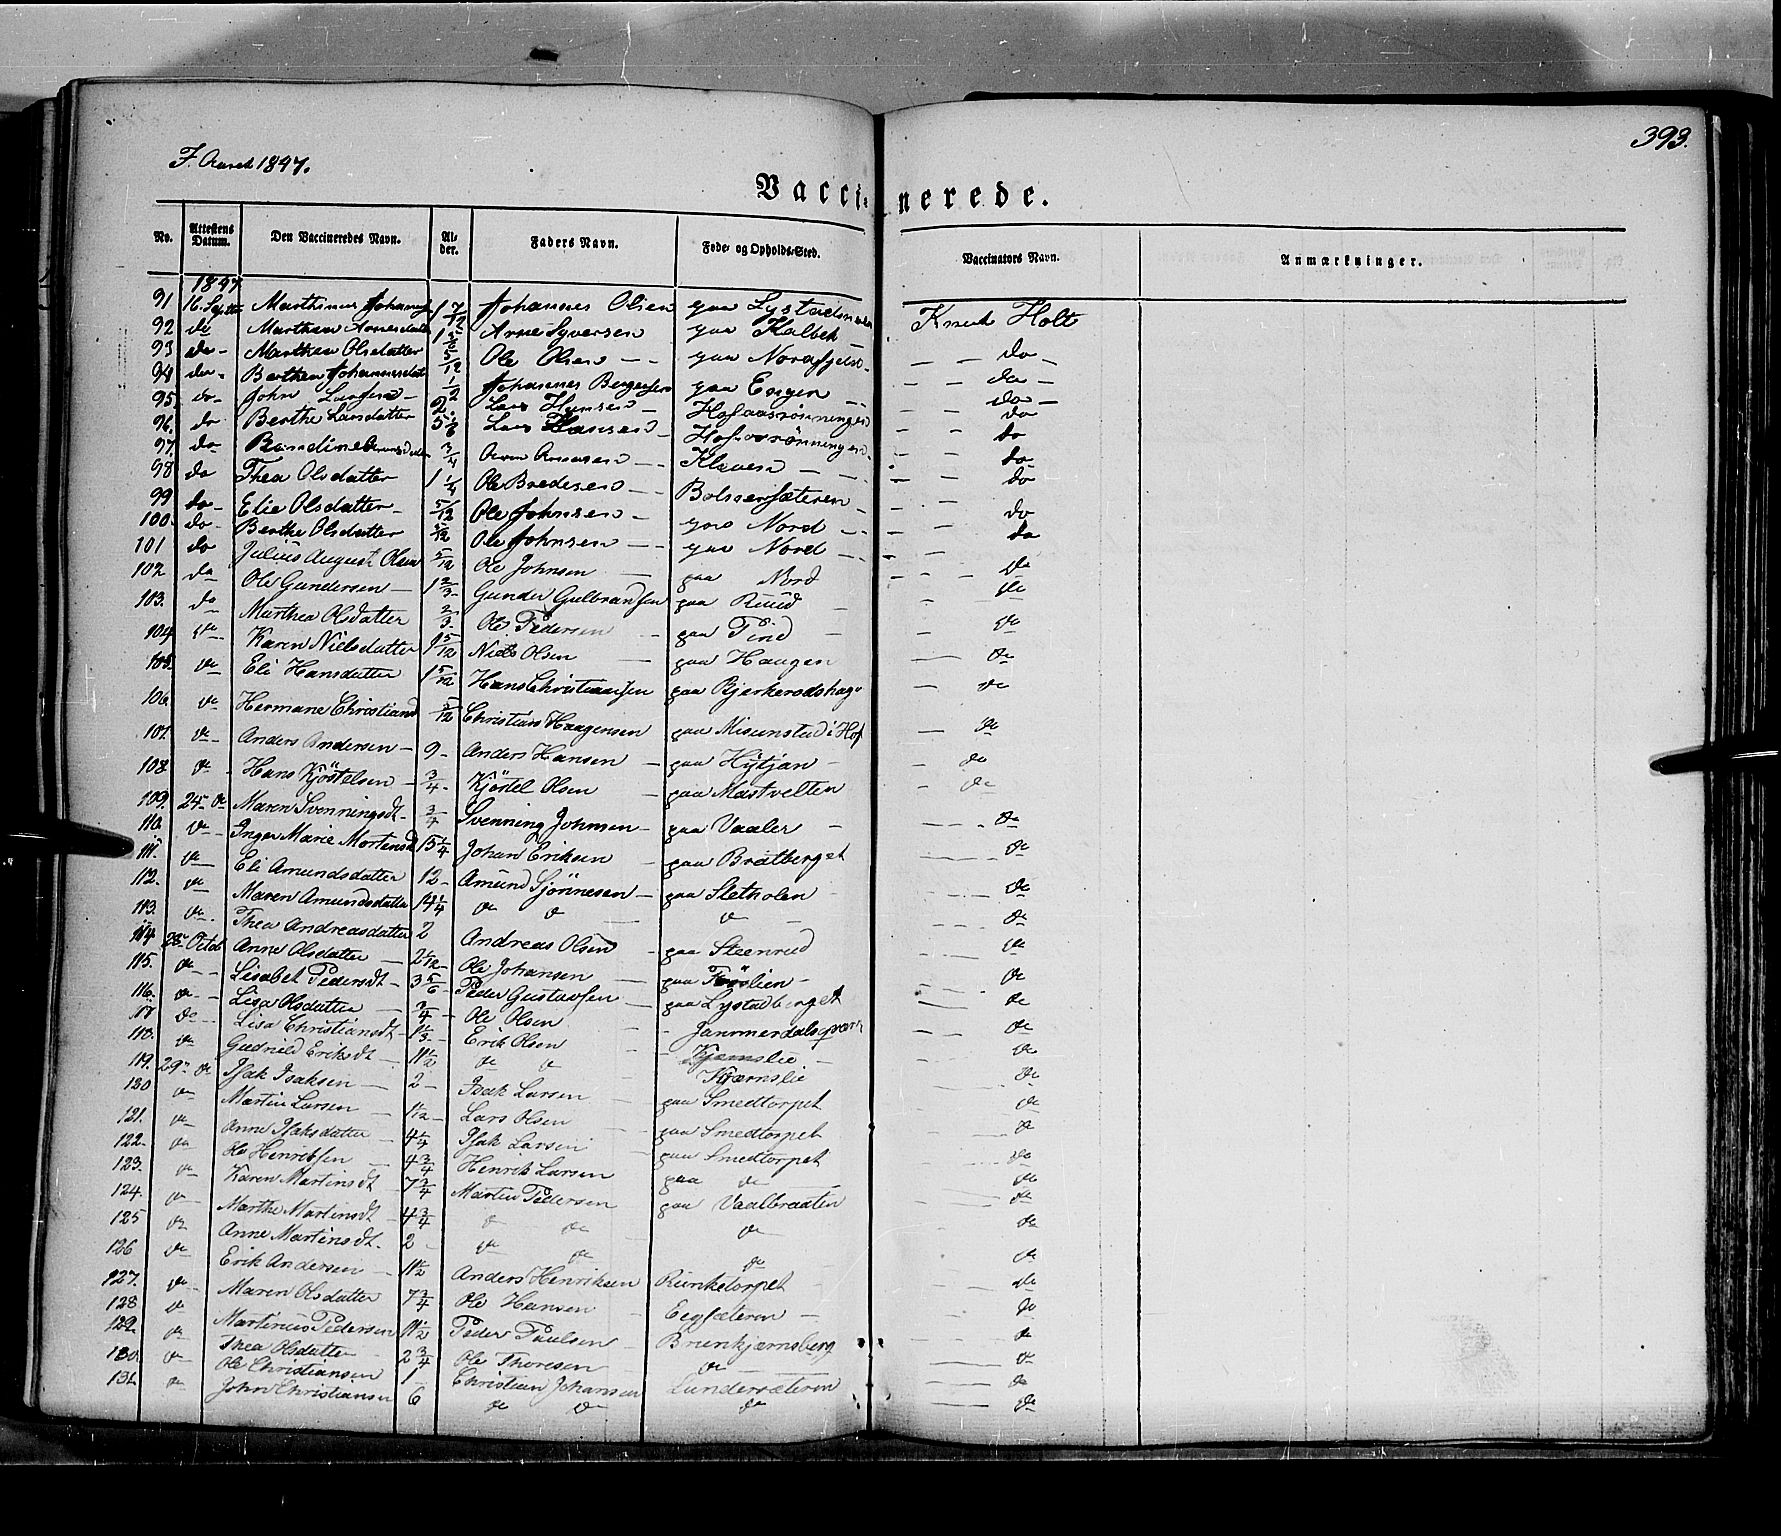 393.
I Aaret 1847.
Vaccinerede.
No. Attestens Datum. Den Vaccineredes Navn. Alder. Faders Navn. Føde- og Opholds-Sted. Vaccinators Navn. Anmærkninger.
1847
91 16. Septbr Marthinus Johannes 1 7/12 Johannes Olsen paa Lystad Knud Holt
92 do Marthea Arnesdatter 1 Arne Syversen paa Kalbek — do
93 do - Marthea Olsdatter 5/12 Ole Olsen — paa — do —
94 do - Berthea Johannesdat 1/2 Johannes Bergersen paa Engen — do —
95 do - John Larsen 2. Lars Hansen — Hofaasrønningen do
96. do Berthe Larsdatter 5 1/6 Lars Hansen — Hofaasrønningen do
97. do Bendine 3/4 Aren Arnesen — Klaven — do
98 do Thea Olsdatter 1 1/4 Ole Bredesen — Bolssersæteren — do
99 do - Elie Olsdatter - 5/12 Ole Johnsen — paa Nord — do
100. do - Berthe Olsdatter 5/12 Ole Johnsen — paa Nord — do
101 do Julius August Olsen 5/12 Ole Johnsen — paa Nord — do
102 do Ole Gundersen — 1 2/3 Gunder Gulbransen paa Ruud — do
103. do Marthea Olsdatter 2/3 Ole Pedersen — paa Tind — do
104 do Karen Nielsdatter 1 5/12 Niels Olsen — paa Haugen — do
105. do Eli Hansdatter 1 5/12 Hans Christiansen paa Bjerkerodshag — do
106. do Hermane Christiand 5/12 Christian Haagensen paa Misunstad i Hof — do
107. do - Anders Andersen — 9 - Anders Hansen — paa Hytjan - do
108 do - Hans Kjöstelsen — 3/4 - Kjöstel Olsen paa Mastvelten do
109. 24 - do Maren Svenningsdt - 3/4 Svenning Johnsen — paa Vaaler — do
110. do - Inger Marie Mortensd 15 1/4 Johan Eriksen — paa Bratberget do
111. do Eli Amundsdatter 12 - Amund Sjönnesen — paa Sletholen do
112. do Maren Amundsdatter 14 1/4 do do — do — do
113. do - Thea Andreasdatter 2 Andreas Olsen — paa Steenrud do
114 28 - Octob Anne Olsdatter — 2 1/12 - Ole Johansen — paa — do
115. do - Lisabet Pedersdt - 3 5/6 - Peder Gustavsen — paa Lystadberget do
116. do - Lisa Olsdatter — 3/4 - Ole Olsen — Jammerdals do
117 do - Lisa Christiansdt - 1 1/3 - Erik Olsen — Kjernslie — do
118. do Gudnild Eriksdt — 11 1/2 do do Kjærnslie do
119. 29 - do Isak Isaksen — 2 - Isak Larsen — paa Smedtorpet do
120 do Martin Larsen — 1 1/12 - Lars Olsen — paa Smedtorpet do
121. do - Anne Isaksdatter 4 1/4 Isak Larsen paa Smedtorpet do
122. do Ole Henriksen — 4 3/4 Henrik Larsen paa do — do
123. do Karen Martinsdt - 7 3/4 Martin Pedersen paa Vaalbraaten do
124. do Marthe Martinsdt 4 3/4 do do do do
125 do Anne Martinsdt. 2 - do do do do
126 do Erik Andersen — 11 1/2 Anders Henriksen Runketorpet do
127. do - Maren Olsdatter 7 3/4 Ole Hansen — Eegsæteren — do
128 do Martinus Pedersen 11 1/2 Peder Paulsen - Brunkjernsberg do
129. do Thea Olsdatter 2 3/4 Ole Thoresen — do — do
130. do - Ole Christiansen 1 - Christian Johansen Lundersæteren do
131. do John Christiansen 6 do do do do